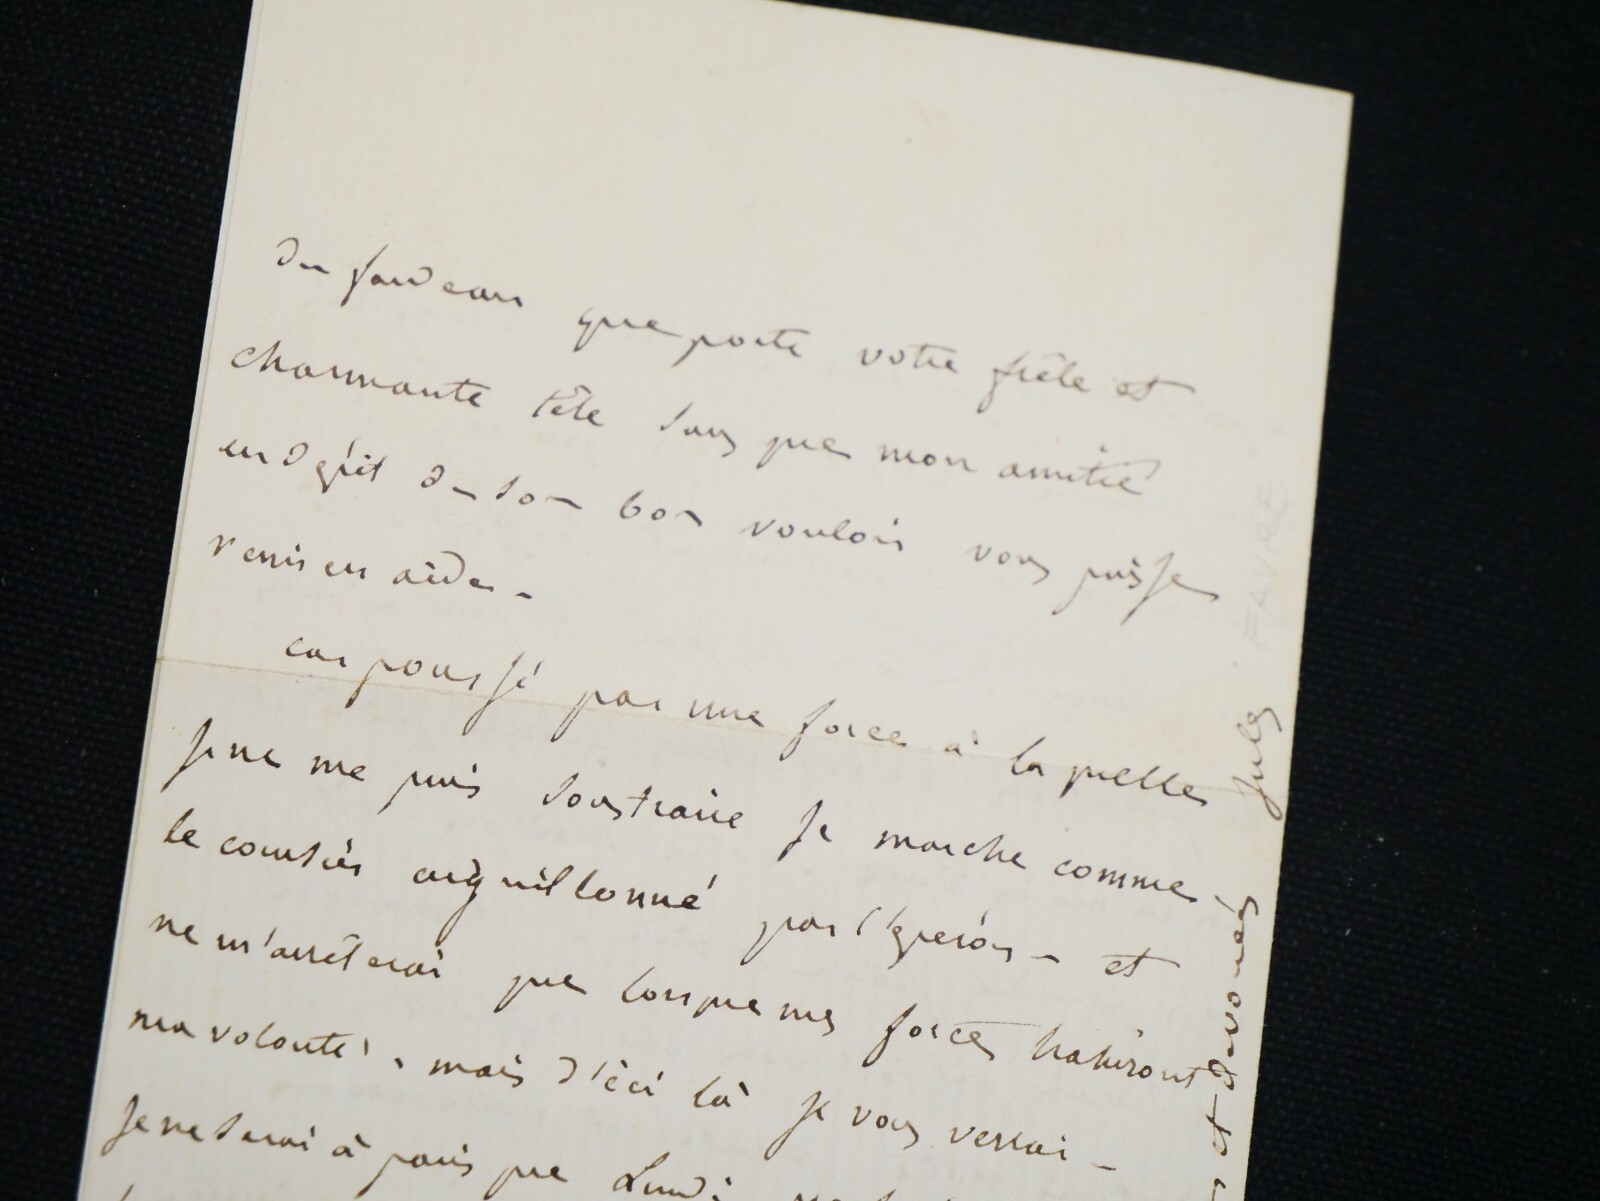 du fardeau que porte votre frêle et
charmante tête sans que mon amitié
en dépit de son bon vouloir vous puisse
venir en aide -
car poussé par une force à laquelle
je ne me puis soustraire je marche comme
le coursier aiguillonné par l'éperon - et
ne m'arrêterai que lorsque mes forces trahiront
ma volonté, mais d'ici là je vous verrai -
je ne serai à paris que Lundi
et dévoué Jules
FAVRE